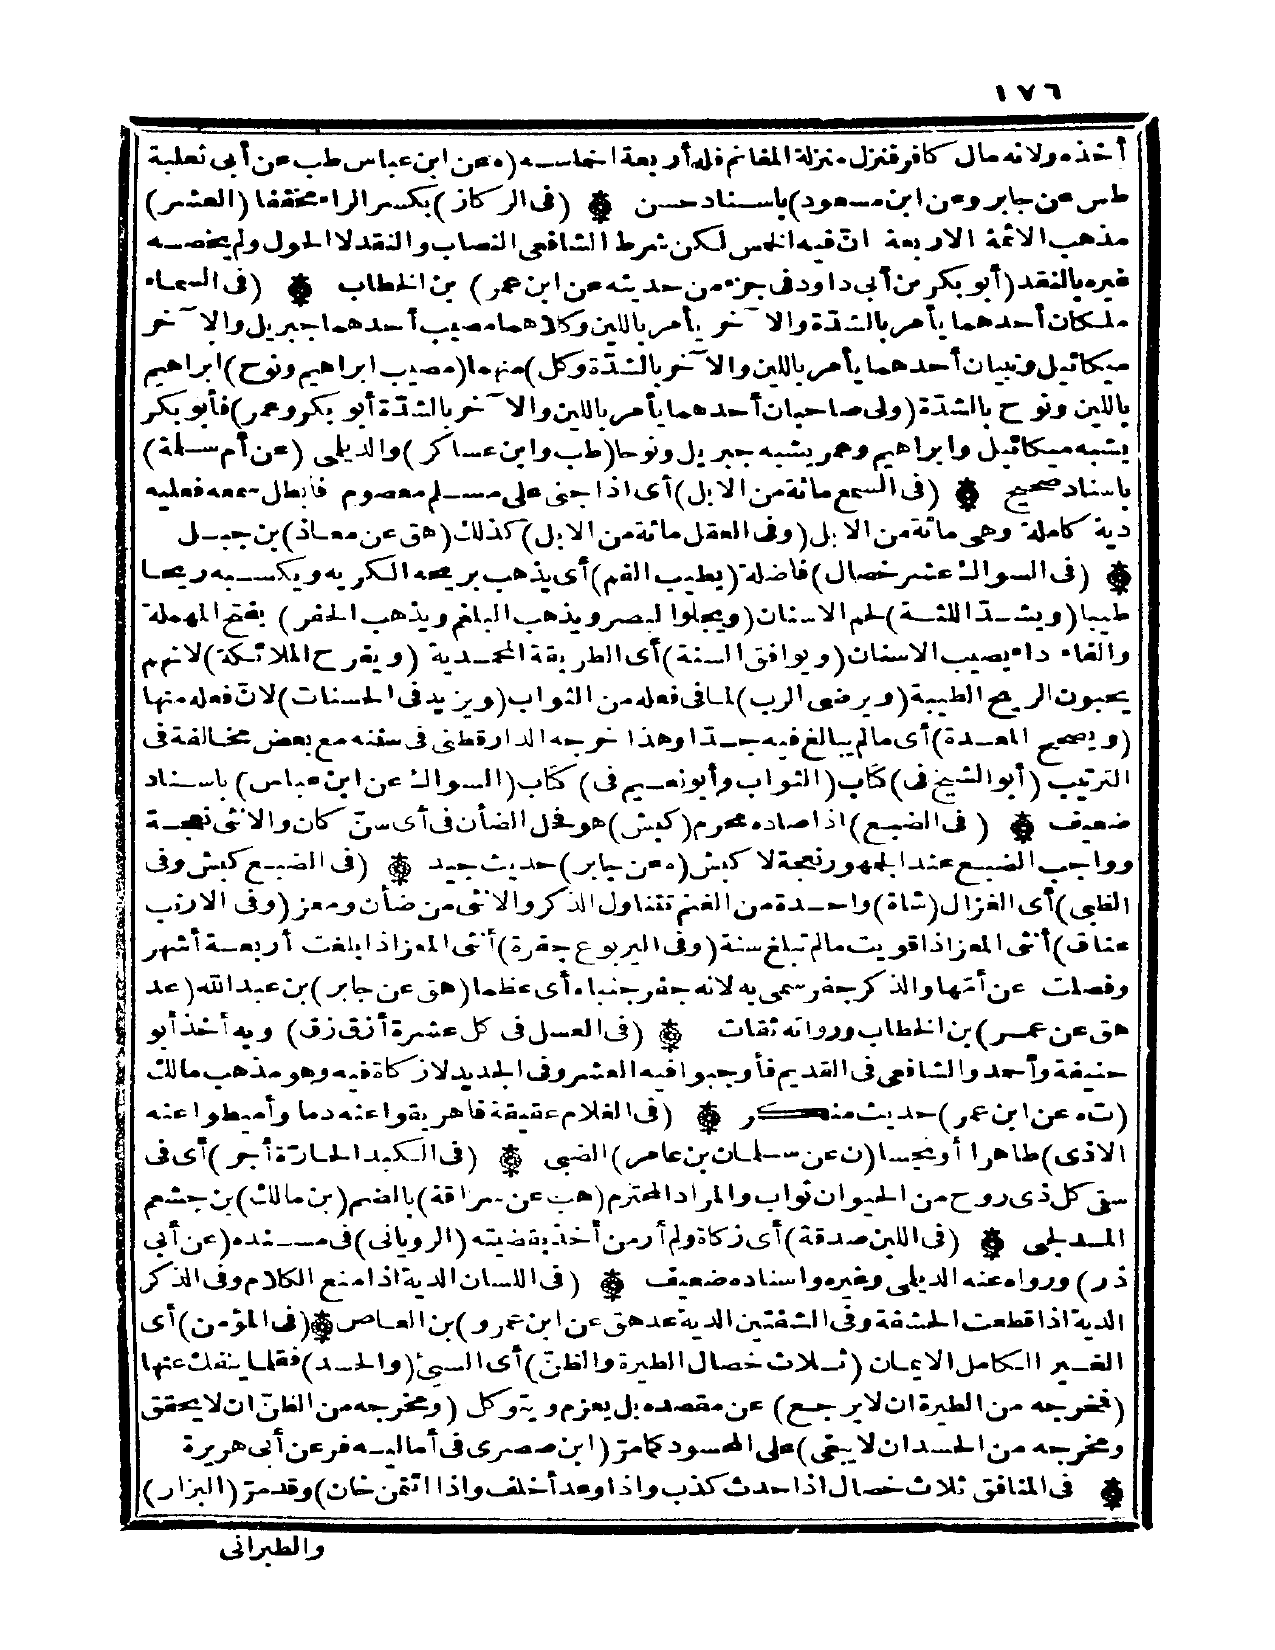 ١٧٦
أخذه ولانه مال كافر فنزل منزلة المغانم فله أربعة أخماسه (ه عن ابن عباس طب عن أبى ثعلبة
طس عن جابر وعن ابن مسعود) باسناد حسن ۞ (فى الركاز) بكسر الراء مخففا (العشر)
مذهب الائمة الاربعة انّ فيه الخمس لكن شرط الشافعى النصاب والنقد لا الحول ولم يخصه
غيره بالنقد (أبو بكر بن أبى داود فى جزء من حديثه عن ابن عمر) بن الخطاب ۞ (فى السماء
ملكان أحدهما يأمر بالشدّة والآخر يأمر باللين وكلاهما مصيب أحدهما جبريل والآخر
ميكائيل ونبيان أحدهما يأمر باللين والآخر بالشدّة وكل) منهما (مصيب ابراهيم ونوح) ابراهيم
باللين ونوح بالشدّة (ولى صاحبان أحدهما يأمر باللين والآخر بالشدّة أبو بكر وعمر) فأبو بكر
يشبه ميكائيل وابراهيم وعمر يشبه جبريل ونوحا (طب وابن عساكر) والديلى (عن أم سلمة)
باسناد صحيح ۞ (فى السمع مائة من الابل) أى اذا جنى على مسلم معصوم فأبطل سمعه فعليه
دية كاملة وهى مائة من الابل (وفى العقل مائة من الابل) كذلك (هق عن معاذ) بن جبل
۞ (فى السواك عشر خصال) فاضلة (يطيب الفم) أى يذهب بريحه الكريه ويكسبه ريحا
طيبا (ويشدّ اللثة) لحم الاسنان (ويجلوا لبصر ويذهب البلغم ويذهب الحفر) بفتح المهملة
والفاء داء يصيب الاسنان (ويوافق السنة) أى الطريقة المحمدية (ويفرح الملائكة) لانهم
يحبون الريح الطيبة (ويرضى الرب) لما فى فعله من الثواب (ويزيد فى الحسنات) لانّ فعله منها
(ويصحح المعدة) أى مالم يبالغ فيه جدّا وهذا خرجه الدارقطنى فى سننه مع بعض مخالفة فى
الترتيب (أبو الشيخ فى) كتاب (الثواب وأبو نعيم فى) كتاب (السواك عن ابن عباس) باسناد
ضعيف ۞ (فى الضبع) اذا صاده محرم (كبش) هو فحل الضأن فى أى سنّ كان والانثى نعجة
وواجب الضبع عند الجمهور نعجة لا كبش (ه عن جابر) حديث جيد ۞ (فى الضبع كبش وفى
الظبى) أى الغزال (شاة) واحدة من الغنم تتناول الذكر والانثى من ضأن ومعز (وفى الارنب
عناق) أنثى المعز اذا قويت مالم تبلغ سنة (وفى اليربوع جفرة) أنثى المعز اذا بلغت أربعة أشهر
وفصلت عن أمّها والذكر جفر سمى به لانه جفر جنباه أى عظما (هق عن جابر) بن عبد الله (عد
هق عن عمر) بن الخطاب ورواته ثقات ۞ (فى العسل فى كل عشرة أزق زق) وبه أخذ أبو
حنيفة وأحمد والشافعى فى القديم فأوجبوا فيه العشر وفى الجديد لا زكاة فيه وهو مذهب مالك
(ت ه عن ابن عمر) حديث منكر ۞ (فى الغلام عقيقة فاهريقوا عنه دما وأميطوا عنه
الاذى) طاهرا أو نجسا (ن عن سلمان بن عامر) الضبى ۞ (فى الكبد الحارّة أجر) أى فى
سقى كل ذى روح من الحيوان ثواب والمراد المحترم (هب عن سراقة) بالضم (بن مالك) بن جشم
المدلجى ۞ (فى اللبن صدقة) أى زكاة ولم أر من أخذ بقضيته (الرويانى) فى مسنده (عن أبى
ذر) ورواه عنه الديلى وغيره واسناده ضعيف ۞ (فى اللسان الدية اذا منع الكلام وفى الذكر
الدية اذا قطعت الحشفة وفى الشفتين الدية عد هق عن ابن عمرو) بن العاص ۞ (فى المؤمن) أى
الغير الكامل الايمان (ثلاث خصال الطيرة والظنّ) أى السيئ (والحسد) فقلما ينفك عنها
(فمخرجه من الطيرة ان لا يرجع) عن مقصده بل يعزم ويتوكل (ومخرجه من الظنّ ان لا يحقق
ومخرجه من الحسد ان لا يبغى) على المحسود كما مرّ (ابن صصرى فى أماليه فر عن أبى هريرة
۞ فى المنافق ثلاث خصال اذا حدث كذب واذا وعد أخلف واذا ائتمن خان) وقد مرّ (البزار)
والطبرانى